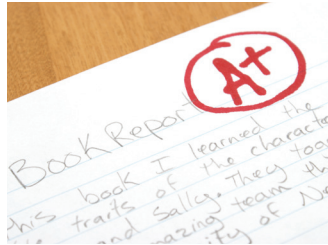 A+
Book Report
his book I learned the
traits of the character
and Sally. They toa
mazing team th
ity of Ne